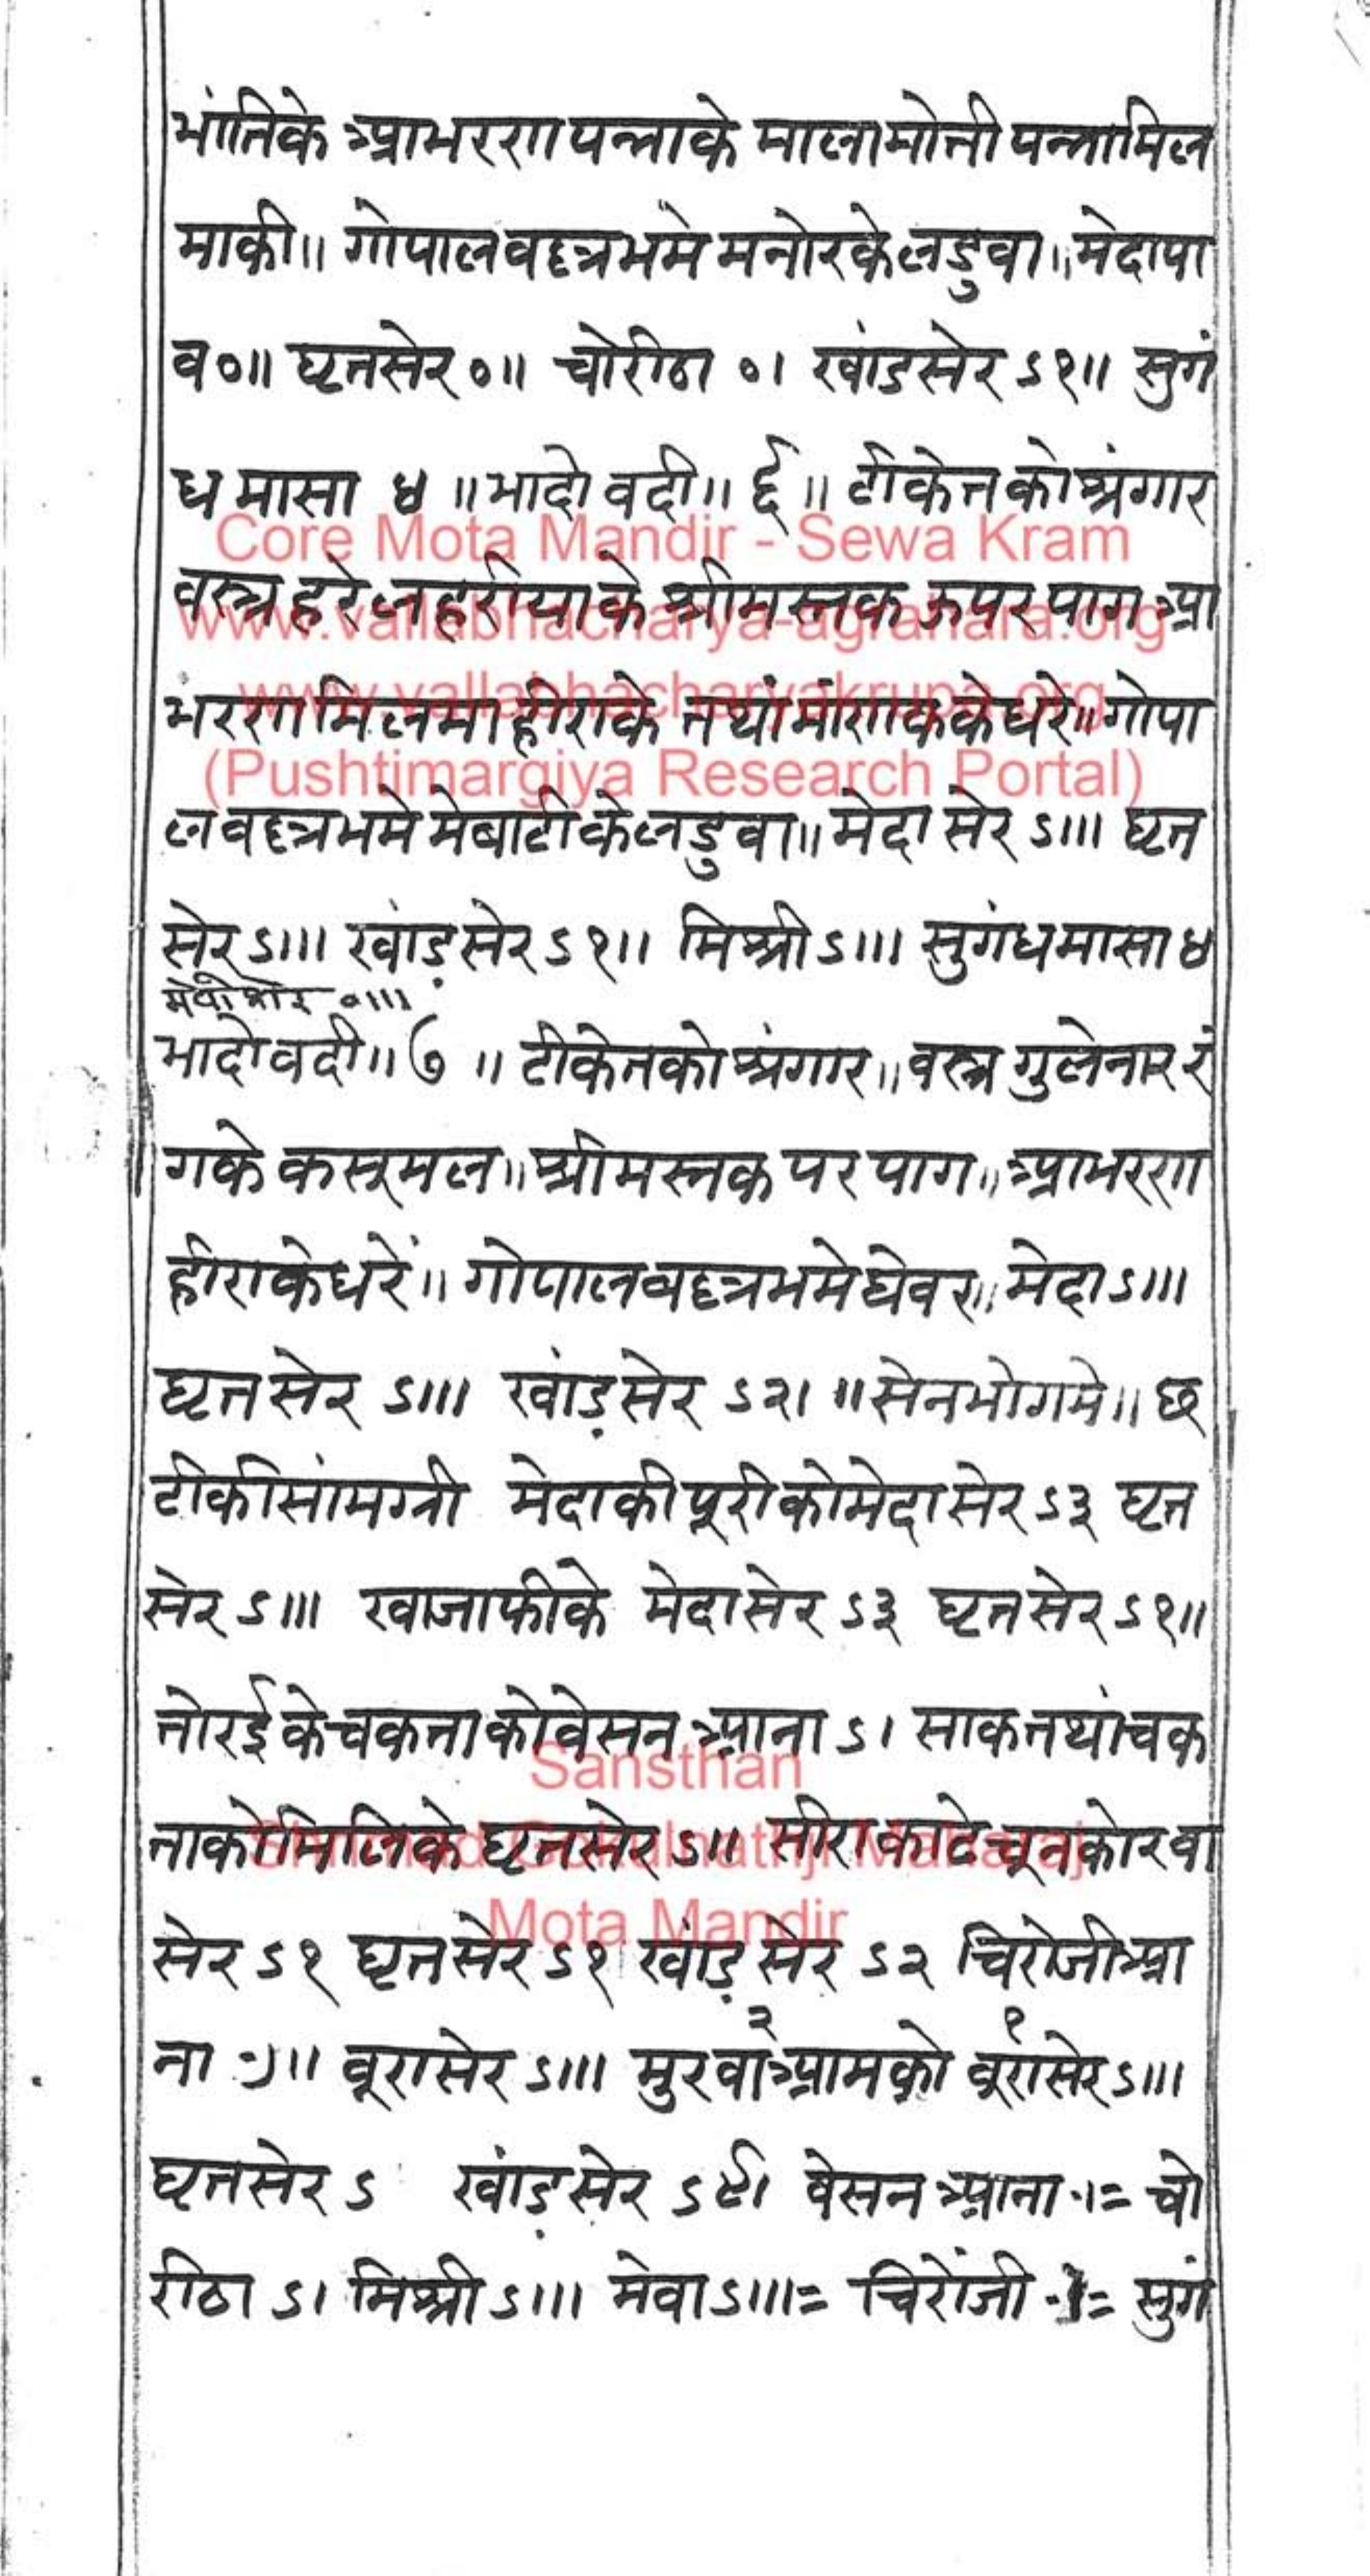 भांतिके आभरण पन्नाके मालामोती पन्नामिल
माकी॥ गोपालवल्लभमे मनोरकेलडुवा॥ मेदापा
व०॥ घृतसेर०॥ चोरीठा ०। खांडसेर ऽ१॥ सुगं
ध मासा ४ ॥ भादो वदी॥ ६ ॥ टीकेतको श्रंगार
Core Mota Mandir - Sewa Kram
वस्त्र हरे लहरीयाके श्रीमस्तक ऊपर पाग आ
www.vallabhacharya-agrahara.org
भरण मिलमा हीराके तथां मांणकके धरे॥ गोपा
www.vallabhacharyakrupa.org
(Pushtimargiya Research Portal)
लवल्लभमे मेबाटीकेलडुवा॥ मेदा सेर ऽ॥। घृत
सेर ऽ॥। खांड़सेर ऽ१॥ मिश्री ऽ॥। सुगंधमासा ४
०॥।
भादोवदी॥ ७ ॥ टीकेतको श्रंगार॥ वस्त्र गुलेनार रं
गके कसूमल॥ श्रीमस्तक पर पाग॥ आभरण
हीराकेधरें॥ गोपालवल्लभमे घेवर॥ मेदा ऽ॥।
घृत सेर ऽ॥। खांड़सेर ऽ२। ॥ सेनभोगमे॥ छ
टीकीसांमग्री मेदाकी पूरीकोमेदा सेर ऽ३ घृत
सेर ऽ॥। खाजाफीके मेदासेर ऽ३ घृतसेर ऽ१॥
तोरईकेचकताकोवेसन आना ऽ। साकतथांचक
Sansthan
ताकोमिलिके घृतसेर ऽ॥ सीराकाटे चूनकोरवा
Shrimad Gokulnathji Maharaj
सेर ऽ१ घृतसेर ऽ१ खांड़ सेर ऽ२ चिरोजीआ
Mota Mandir
ना ॥ वूरासेर ऽ॥। मुरवा२आमको वूरा१सेर ऽ॥।
घृतसेर ऽ खांड़सेर वेसन आना ।= चो
रीठा ऽ। मिश्री ऽ॥। मेवा ऽ॥।= चिरोंजी ।= सुगं